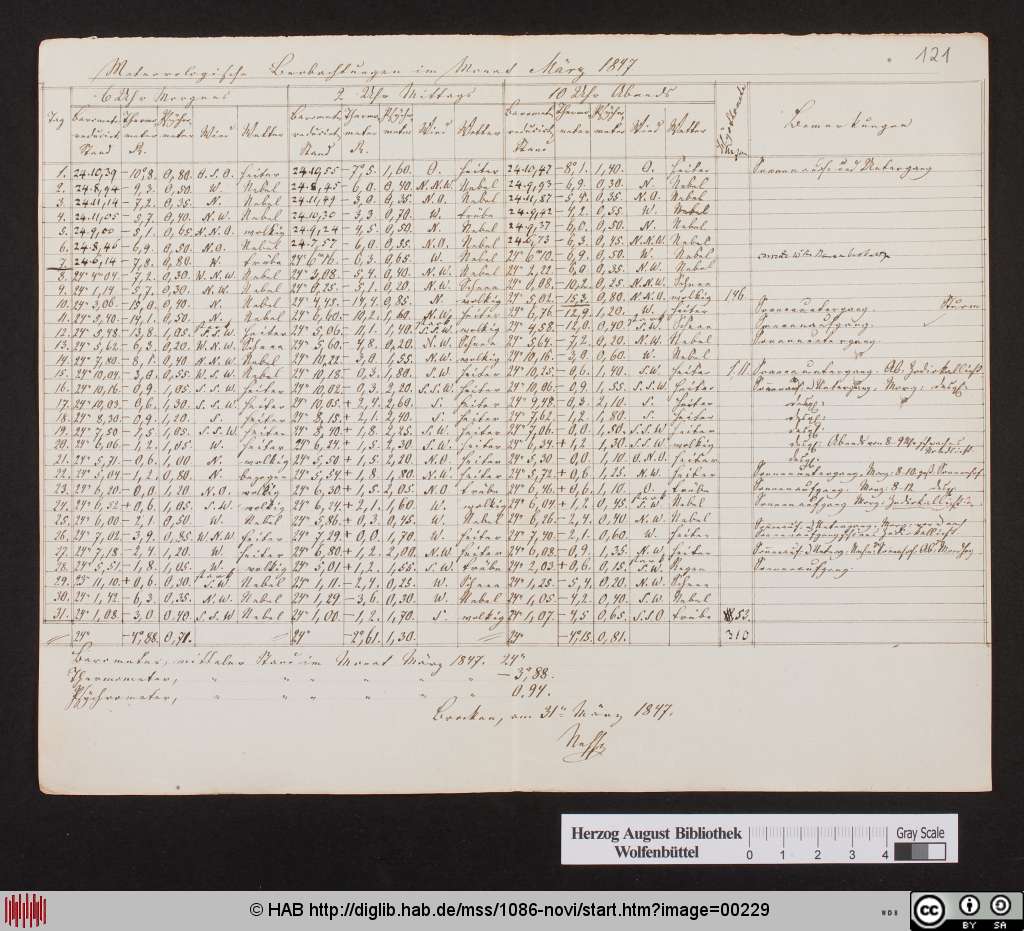 121
Meteorologische Beobachtungen im Monat März 1847
6 Uhr Morgens 2 Uhr Mittags 10 Uhr Abends
Tag Baromet. reducirt. Stand Thermometer R. Psychrometer Wind Wetter Baromet. reducirt. Stand Thermometer R. Psychrometer Wind Wetter Baromet. reducirt. Stand Thermometer Psychrometer Wind Wetter Bemerkungen
1. 24.10,39 –10,8. 0,80. O.S.O. heiter 24.10,55 –7,5. 1,60. O. heiter 24.10,47 –8,1. 1,40. O. heiter Sonnenauf- und Untergang
2. 24.8,94 –9,3. 0,50. W. Nebel 24.8,45 –6,0. 0,40. N.N.W. Nebel 24.9,93 –6,9. 0,30. N. Nebel
3. 24.11,14 –7,2. 0,35. N. Nebel 24.11,49 –3,0. 0,35. N.O. Nebel 24.11,87 –5,4. 0,35. N.O. Nebel
4. 24.11,05 –5,7. 0,40. N.W. Nebel 24.10,30 –3,3. 0,70. W. trübe 24.9,42 –4,2. 0,55. W. Nebel
5. 24.9,00 –5,1. 0,65. N.N.O. wolkig 24.9,24 –4,5. 0,50. N. Nebel 24.9,37 –6,0. 0,50. N. Nebel
6. 24.8,46 –6,9. 0,50. N.O. Nebel 24.7,57 –6,0. 0,55. N.O. Nebel 24.6,73 –6,3. 0,45. N.N.W. Nebel
7. 24.6,14 –7,8. 0,80. W. trübe 24.6,16 –6,3. 0,65. W. Nebel 24.6,10 –6,9. 0,50. W. Nebel
8. 24.4,04 –7,2. 0,30. W.N.W. Nebel 24.3,08 –5,4. 0,40. N.W. Nebel 24.2,22 –6,0. 0,35. N.W. Nebel
9. 24.1,14 –5,7. 0,30. N.W. Nebel 24.0,25 –5,1. 0,20. N.W. Schnee 24.0,08 –10,2. 0,25. N.N.W. Schnee
10. 24.3,06 –15,0. 0,40. N. Nebel 24.4,45 –14,4. 0,85. N. wolkig 24.5,02 –15,3. 0,80. N.N.O. wolkig 146
11. 24.5,40 –14,1. 0,50. N. Nebel 24.6,60 –10,2. 1,60. N.W. heiter 24.6,76 –12,9. 1,20. W. heiter Sonnenuntergang. Sturm
12. 24.5,48 –13,8. 1,05. S.S.W. heiter 24.5,06 –11,1. 1,40. S.S.W. wolkig 24.4,58 –12,0. 0,40. S.W. Schnee Sonnenaufgang.
13. 24.5,62 –6,3. 0,20. W.N.W. Schnee 24.5,60 –4,8. 0,20. N.W. Schnee 24.5,64 –7,2. 0,20. N.W. Nebel Sonnenuntergang.
14. 24.7,80 –8,1. 0,40. N.N.W. Nebel 24.10,22 –3,0. 1,55. N.W. wolkig 24.10,16 –3,0. 0,60. W. Nebel
15. 24.10,04 –3,0. 0,55. W.S.W. Nebel 24.10,18 –0,3. 1,80. S.W. heiter 24.10,25 –0,6. 1,40. S.W. heiter Sonnenuntergang. Ab. Zodiakallicht.
16. 24.10,16 –0,9. 1,05. S.S.W. heiter 24.10,02 –0,3. 2,20. S.S.W. heiter 24.10,06 –0,9. 1,55. S.S.W. heiter
17. 24.10,03 –0,6. 1,30. S.S.W. heiter 24.10,05 +2,4. 2,60. S. heiter 24.9,48 –0,3. 2,10. S. heiter desgl.
18. 24.8,30 –0,9. 1,20. S. heiter 24.8,15 +2,1. 2,40. S. heiter 24.7,62 –1,2. 1,80. S. heiter desgl.
19. 24.7,50 –1,5. 1,05. S.S.W. heiter 24.8,40 +1,8. 2,25. S.W. heiter 24.7,06 –0,0. 1,50. S.S.W. heiter desgl.
20. 24.6,06 –1,2. 1,05. W. heiter 24.6,24 +1,5. 2,30. S.W. heiter 24.1,34 +1,2. 1,30. S.S.W. wolkig
21. 24.5,71 –0,6. 1,00 N. wolkig 24.5,50 +1,5. 2,20. N.O. heiter 24.5,30 –0,0. 1,10. O.N.O. heiter desgl.
22. 24.5,04 –1,2. 0,80. N. bezogen 24.5,54 +1,8. 1,80. N.W. heiter 24.5,72 +0,6. 1,25. N.W. heiter
23. 24.6,20 –0,0. 1,20. N.O. wolkig 24.6,30 +1,5. 2,05. N.O. trübe 24.6,46 +0,6. 1,10. O. trübe
24. 24.6,52 +0,6. 1,05. S.W. wolkig 24.6,24 +2,1. 1,60. W. wolkig 24.6,04 +1,2. 0,45. S.W. Nebel
25. 24.6,00 –2,1. 0,50. W. Nebel 24.5,86 +0,3. 0,45. W. Nebel 24.6,26 –2,4. 0,40. N.W. Nebel
26. 24.7,02 –3,9. 0,35. W.N.W. heiter 24.7,29 +0,0. 1,70. W. heiter 24.7,40 –2,1. 0,60. W. heiter
27. 24.7,18 –2,4. 1,20. W. heiter 24.6,80 +1,2. 2,00. N.W. heiter 24.6,08 –0,9. 1,35. N.W. heiter
28. 24.5,51 –1,8. 1,05. W. wolkig 24.5,01 +1,2. 1,55. S.W. trübe 24.2,03 +0,6. 0,15. S.W. Regen Sonnenaufgang.
29. 23.11,10 +0,6. 0,30. S.W. Nebel 24.1,11 –2,4. 0,25. W. Schnee 24.1,25 –5,4. 0,20. N.W. Schnee
30. 24.1,42 –6,3. 0,35. N.W. Nebel 24.1,29 –3,6. 0,30. W. Nebel 24.1,05 –4,2. 0,40. S.W. Nebel
31. 24.1,08 –3,0. 0,40. S.S.W. Nebel 24.1,00 –1,2. 1,70. S. wolkig 24.1,07 –4,5. 0,65. S.S.O. trübe 53.
24" –4,88. 0,71. 24" –2,61. 1,30. 24" –4,13. 0,81. 310
Barometer, mittler Stand im Monat März 1847. 24"
Thermometer, " " " " " " –3,88.
Psychrometer, " " " " " " 0,94.
Brocken, am 31ten März 1847.
Nehse
Herzog August Bibliothek
Wolfenbüttel
0 1 2 3 4
Gray Scale
© HAB http://diglib.hab.de/mss/1086-novi/start.htm?image=00229
WDB
cc BY SA